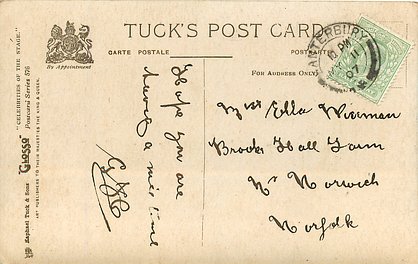 TUCK'S POST CARD
CARTE POSTALE
POSTKARTE
By Appointment
FOR ADDRESS ONLY
Raphael Tuck & Sons' "GLOSSO" "CELEBRITIES OF THE STAGE."
Postcard Series 576
ART PUBLISHERS TO THEIR MAJESTIES THE KING & QUEEN.
Hope you are
having a nice time
CANTERBURY
PM
11
07
Miss Ella
Brooks Hall Farm
Nr Norwich
Norfolk